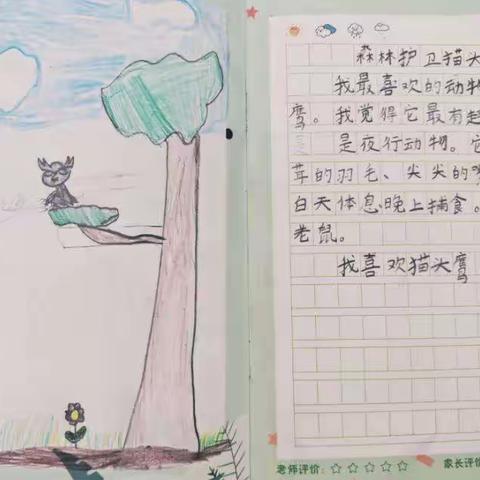 森林护卫猫头
我最喜欢的动物
鹰。我觉得它最有
是夜行动物。它
茸的羽毛、尖尖的
白天体息晚上捕食。
老鼠。
我喜欢猫头鹰
老师评价：☆☆☆☆☆ 家长评价